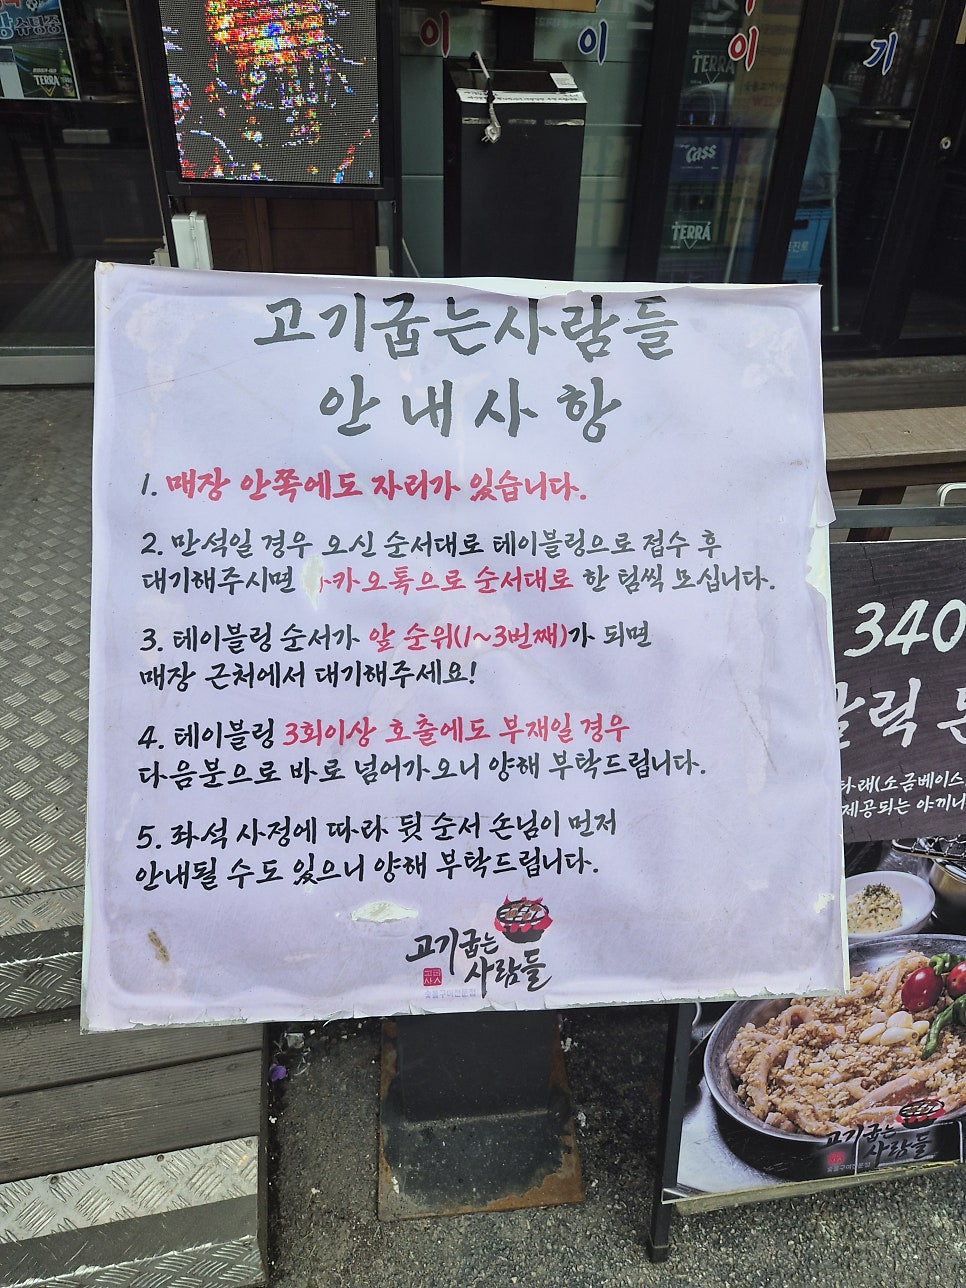 이
이
이
기
TERRA
TERRA
Cass
TERRA
고기굽는사람들
안내사항
1. 매장 안쪽에도 자리가 있습니다.
2. 만석일 경우 오신 순서대로 테이블링으로 접수 후
대기해주시면 카카오톡으로 순서대로 한 팀씩 모십니다.
3. 테이블링 순서가 앞 순위(1~3번째)가 되면
매장 근처에서 대기해주세요!
4. 테이블링 3회이상 호출에도 부재일 경우
다음분으로 바로 넘어가오니 양해 부탁드립니다.
5. 좌석 사정에 따라 뒷 순서 손님이 먼저
안내될 수도 있으니 양해 부탁드립니다.
고기굽는
사람들
숯불구이전문점
340
갈릭
타래(소금베이스
제공되는 야끼니
고기굽는
사람들
숯불구이전문점